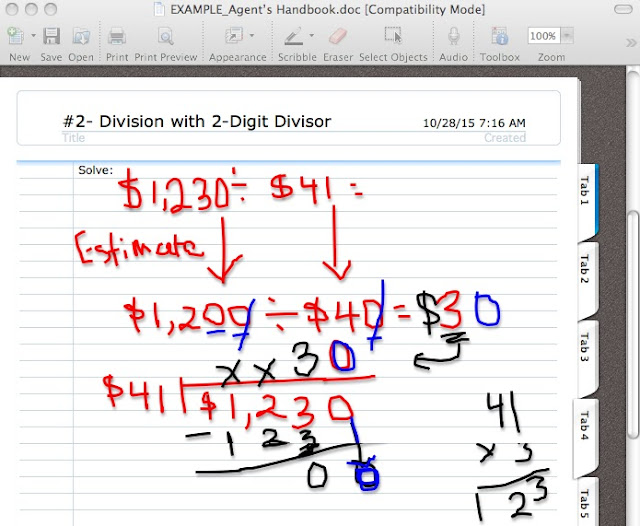 EXAMPLE_Agent's Handbook.doc [Compatibility Mode]
100%
New Save Open Print Print Preview Appearance Scribble Eraser Select Objects Audio Toolbox Zoom
#2- Division with 2-Digit Divisor 10/28/15 7:16 AM
Title Created
Solve:
$1,230 ÷ $41 =
Estimate
$1,200 ÷ $40 = $30
x x 3 0
$41 $1,230
- 1 2 3
0 0
41
x 3
1 2 3
Tab 1
Tab 2
Tab 3
Tab 4
Tab 5